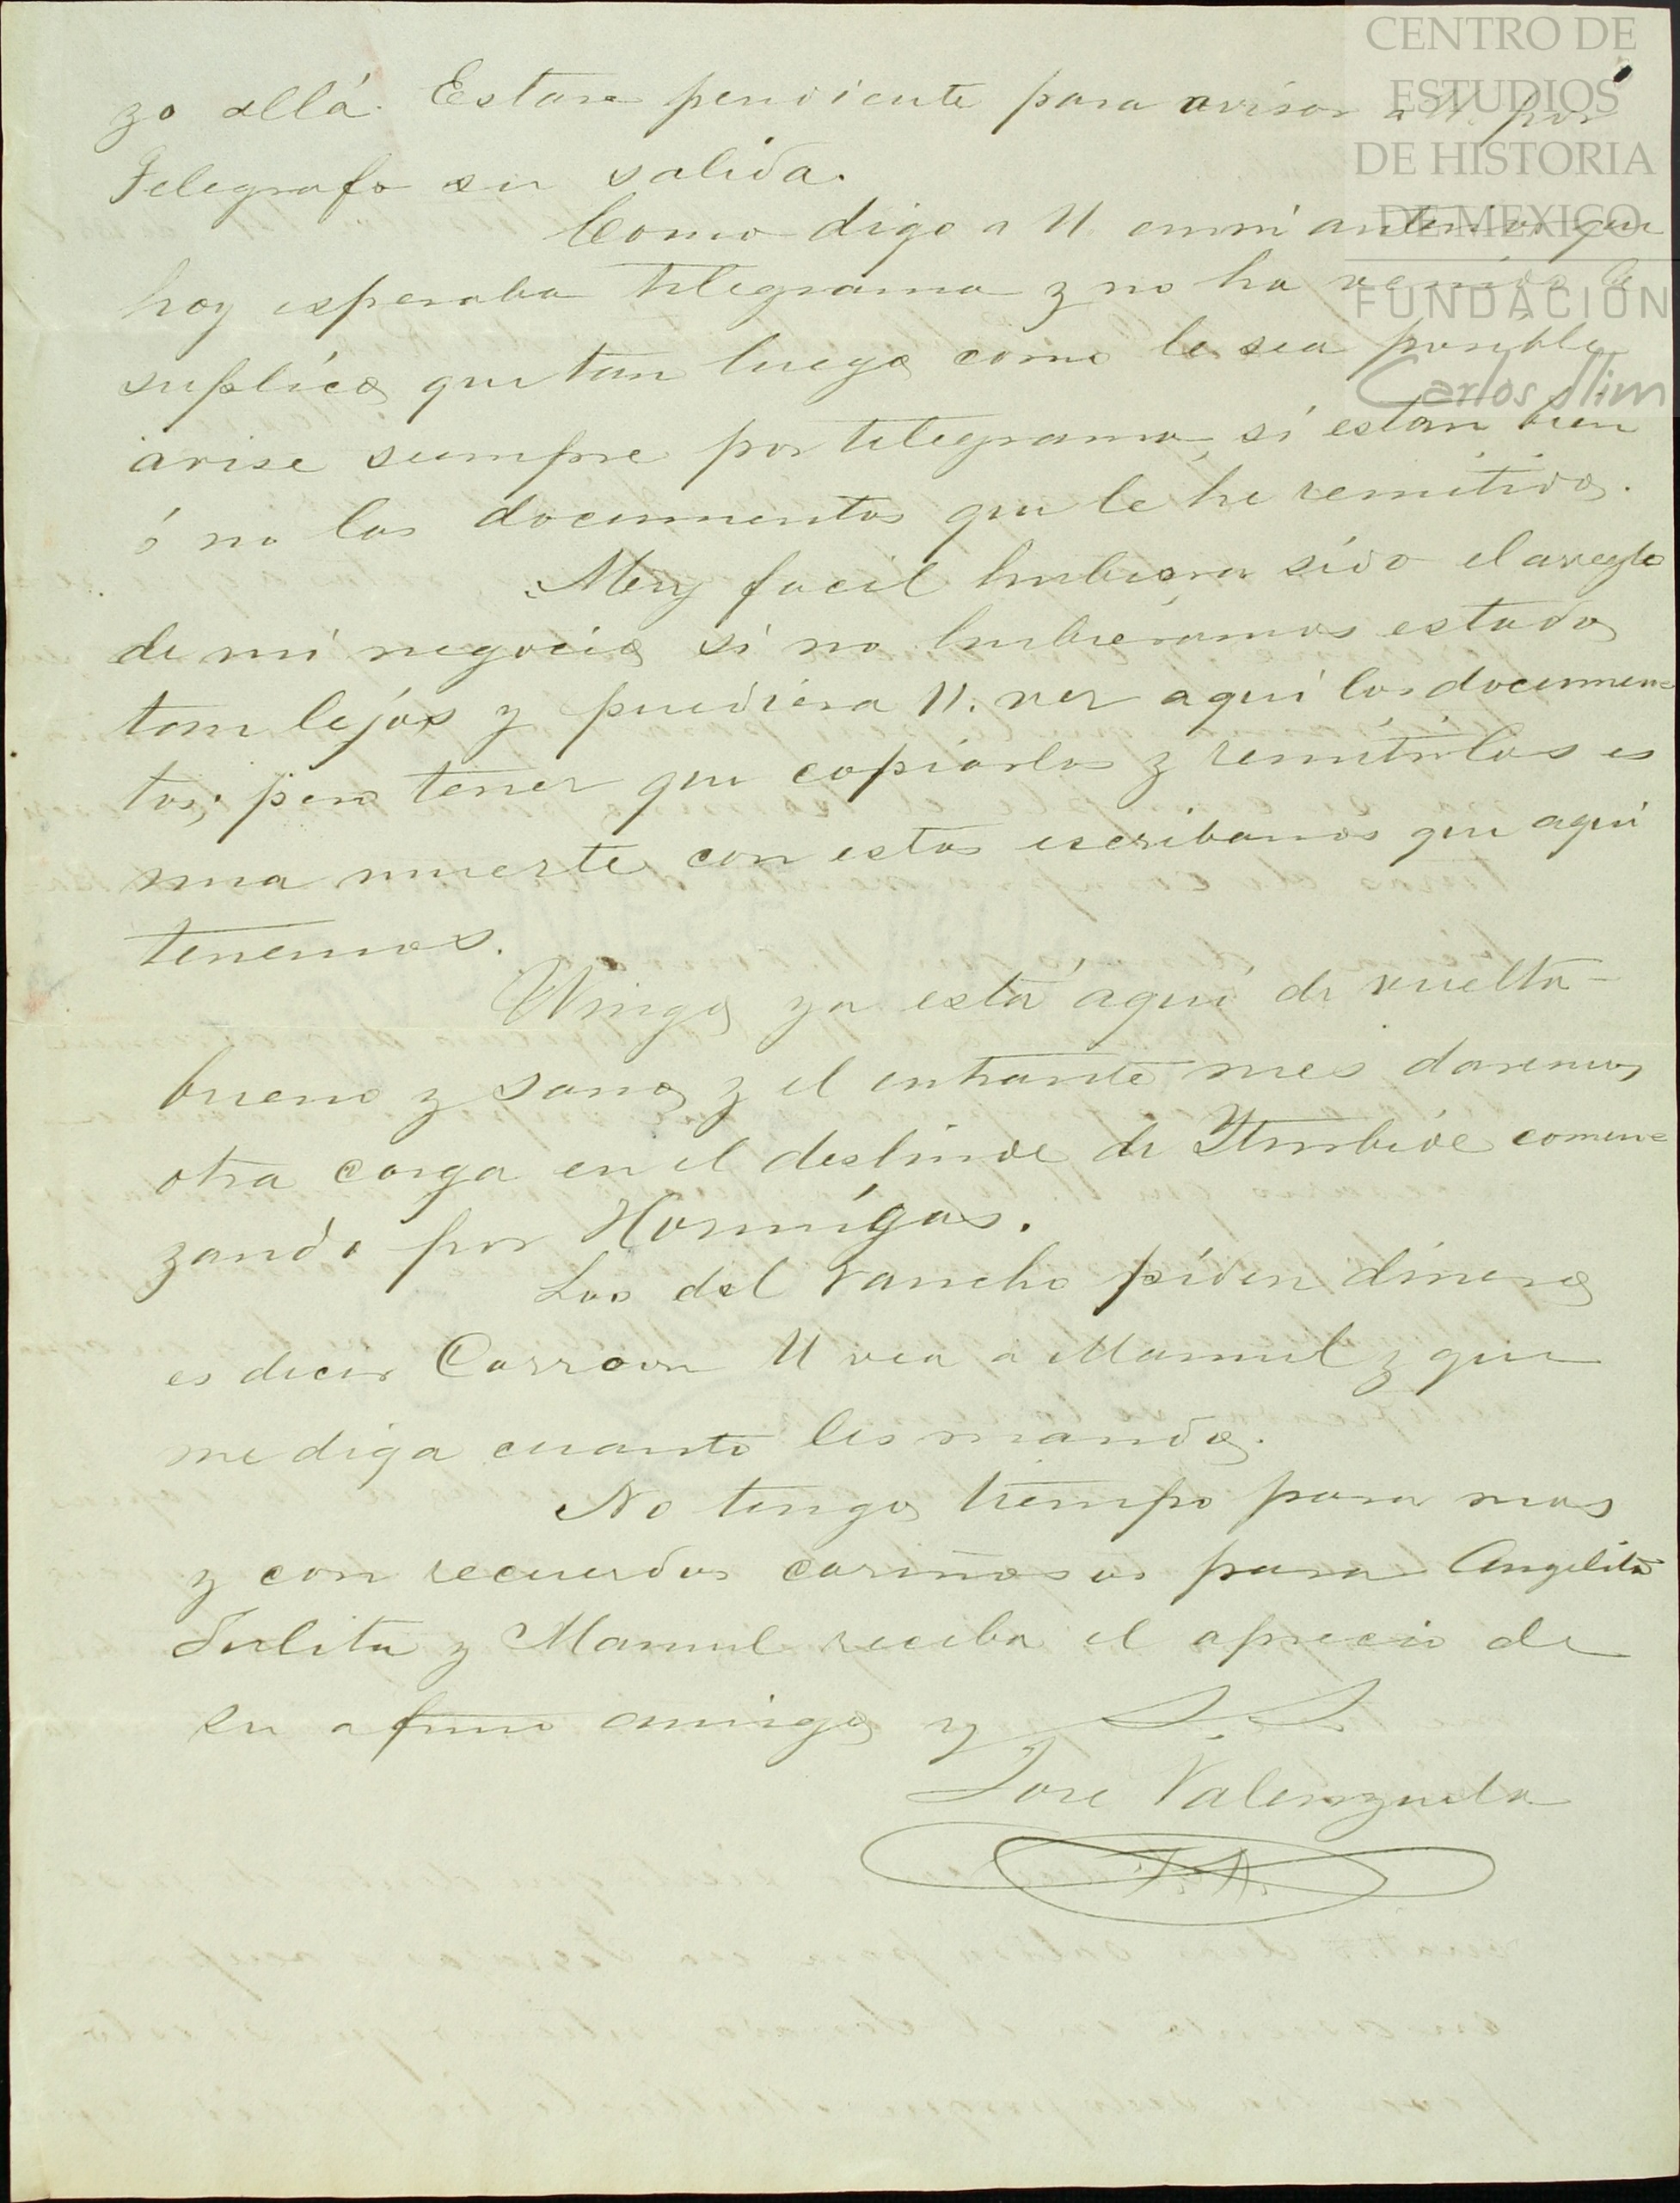 CENTRO DE
ESTUDIOS
DE HISTORIA
DE MEXICO
FUNDACIÓN
Carlos Slim
zo allá. Estare pendiente para avisar a U. por
Telegrafo su salida.
Como digo a U en mi anterior que
hoy esperaba telegrama y no ha venido le
suplico que tan luego como le sea posible
avise siempre por telegrama, si estan bien
ó no los documentos que le he remitido.
Muy facil hubiera sido el areglo
de mi negocio si no hubieramos estado
tan lejos y pudiera U. ver aqui los documen=
tos; pero tener que copiarlos y remitirlos es
una muerte con estos escribanos que aqui
tenemos.
ya está aquí de vuelta
bueno y sano y el entrante mes daremos
otra carga en el deslinde de Yturbide comen=
zando por Hormígas.
Los del rancho piden dinero
es decir Carreon U vea a Manuel y que
me diga cuanto les mando.
No tengo tiempo para mas
y con recuerdos cariñosos para Angelita
Julita y Manuel reciba el aprecio de
su afmo amigo y S. S.
Jose Valenzuela